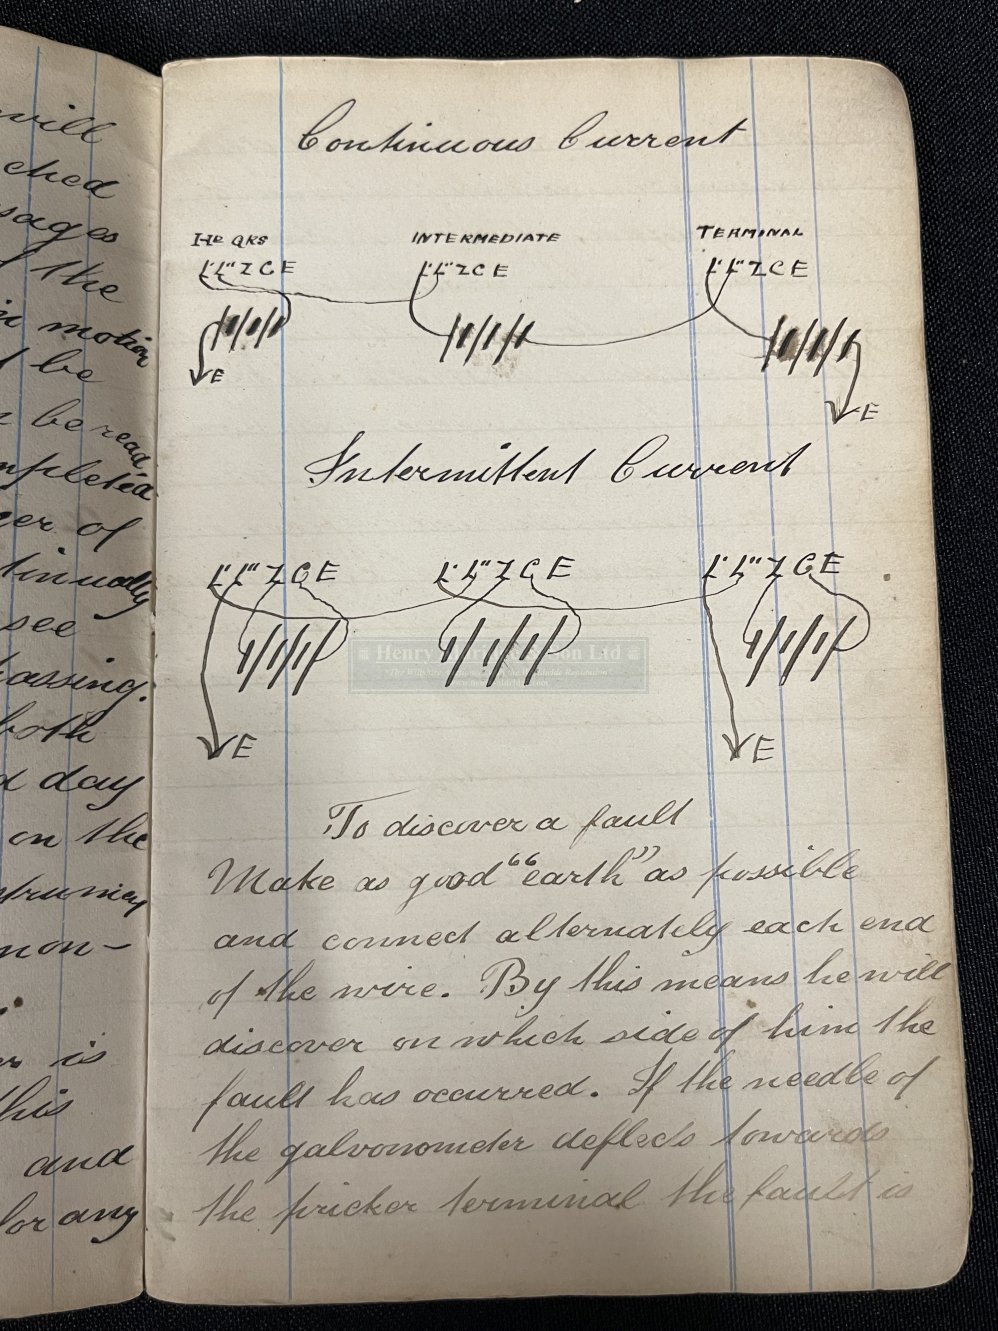 will
ched
sages
the
in motion
be
be read
mpleted
ger of
tinually
see
passing.
both
d day
on the
non-
is
this
and
for any
Continuous Current
Hd QRS INTERMEDIATE TERMINAL
L' L" Z C E L' L" Z C E L' L" Z C E
E
E
Intermittent Current
L' L" Z C E L' L" Z C E L' L" Z C E
Henry Aldridge & Son Ltd
E E
To discover a fault
Make as good "earth" as possible
and connect alternately each end
of the wire. By this means he will
discover on which side of him the
fault has occurred. If the needle of
the galvonometer deflects towards
the pricker terminal the fault is